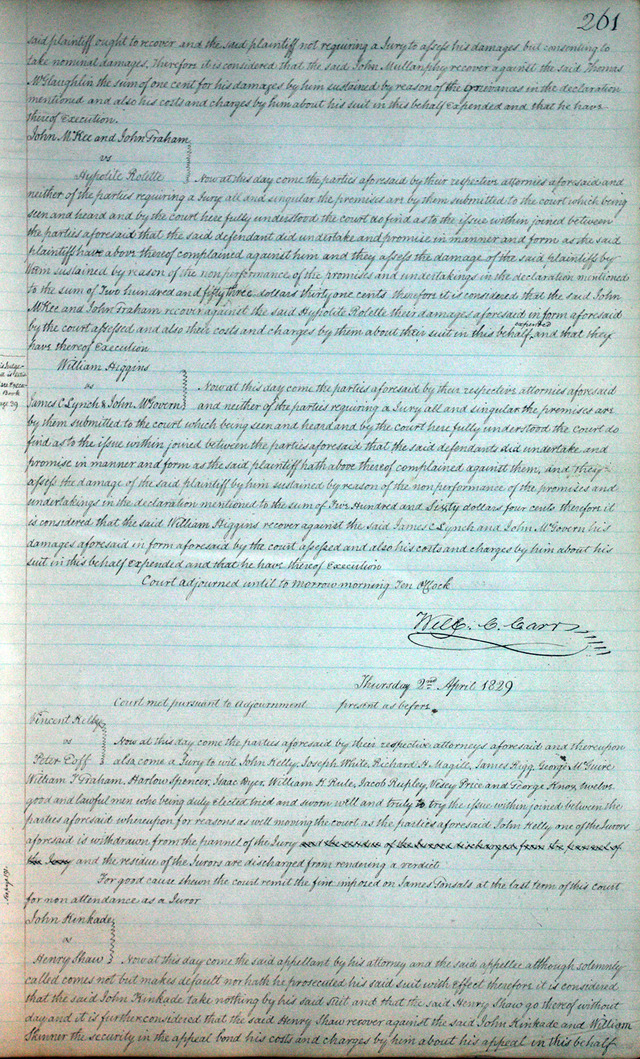 261
said plaintiff ought to recover and the said plaintiff not requiring a Jury to assess his damages, but consenting to
take nominal damages, therefore it is considered that the said John Mullanphy recover against the said Thomas
McGlaughlin the sum of one cent for his damages by him sustained by reason of the grievances in the declaration
mentioned and also his costs and charges by him about his suit in this behalf expended and that he have
thereof Execution.
John McKee and John Graham
vs
Hypolite Rolette } Now at this day come the parties aforesaid by their respective attornies aforesaid and
neither of the parties requiring a Jury all and singular the premises are by them submitted to the court which being
seen and heard and by the court here fully understood the court do find as to the issue within joined between
the parties aforesaid that the said defendant did undertake and promise in manner and form as the said
plaintiff have above thereof complained against him and they assess the damage of the said plaintiffs by
them sustained by reason of the nonperformance of the promises and undertakings in the declaration mentioned
to the sum of Two hundred and fifty three dollars thirty one cents therefore it is considered that the said John
McKee and John Graham recover against the said Hypolite Rolette their damages aforesaid in form aforesaid
by the court assessed and also their costs and charges by them about their suit in this behalf expended and that they
have thereof Execution
William Higgins
vs
James C Lynch & John McGovern } Now at this day come the parties aforesaid by their respective attornies aforesaid
and neither of the parties requiring a Jury all and singular the premises are
by them submitted to the court which being seen and heard and by the court here fully understood the court do
find as to the issue within joined between the parties aforesaid that the said defendants did undertake and
promise in manner and form as the said plaintiff hath above thereof complained against them, and they
assess the damage of the said plaintiff by him sustained by reason of the nonperformance of the promises and
undertakings in the declaration mentioned to the sum of Five Hundred and Sixty dollars four cents therefore it
is considered that the said William Higgins recover against the said James C Lynch and John McGovern his
damages aforesaid in form aforesaid by the court assessed and also his costs and charges by him about his
suit in this behalf Expended and that he have thereof Execution
Court adjourned until to morrow morning Ten OClock
Will. C. Carr
Thursday 2nd April 1829
Court met pursuant to adjournment present as before.
Vincent Kelly
vs
Peter Goff } Now at this day come the parties aforesaid by their respective attorneys aforesaid and thereupon
also come a Jury to wit John Kelly, Joseph White, Richard H. Magill, James Rigg, George McGuire
William T Graham, Harlow Spencer, Isaac Dyer, William K Rule, Jacob Rupley, Vesey Price and George Knox, twelve
good and lawful men who being duly elected tried and sworn well and truly to try the issue within joined between the
parties aforesaid whereupon for reasons as well moving the court as the parties aforesaid John Kelly one of the Jurors
aforesaid is withdrawn from the pannel of the Jury and the residue of the Jurors discharged from the pannel of
the Jury and the residue of the Jurors are discharged from rendering a verdict
For good cause shewn the court remit the fine imposed on James Sansals at the last term of this Court
for non attendance as a Juror
John Kinkade
vs
Henry Shaw } Now at this day come the said appellant by his attorney and the said appellee although solemnly
called comes not but makes default nor hath he prosecuted his said suit with effect therefore it is considered
that the said John Kinkade take nothing by his said suit and that the said Henry Shaw go thereof without
day and it is further considered that the said Henry Shaw recover against the said John Kinkade and William
Skinner the security in the appeal bond his costs and charges by him about his appeal in this behalf